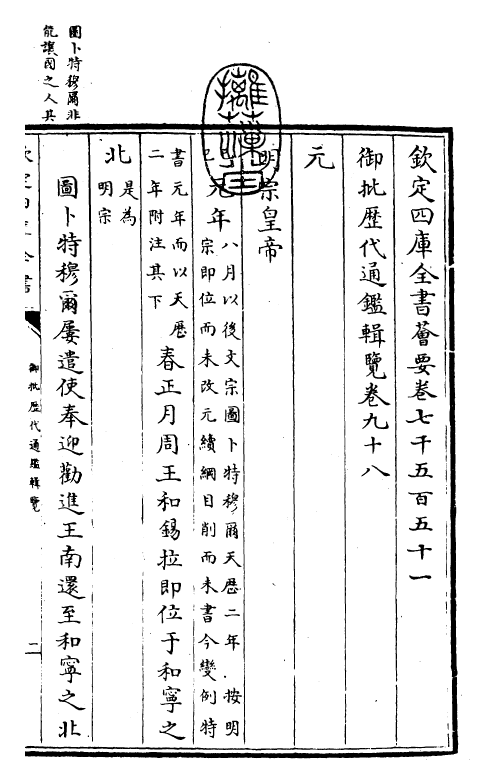 欽定四庫全書薈要卷七千五百五十一
御批歷代通鑑輯覽卷九十八
元
明宗皇帝
元年
八月以後文宗圖卜特穆爾天歷二年按明
宗即位而未改元續綱目削而未書今變例特
書元年而以天歷
二年附注其下
春正月周王和錫拉即位于和寧之
北
是為
明宗
圖卜特穆爾屢遣使奉迎勸進王南還至和寧之北
圖卜特穆爾非
能讓國之人其
御批歷代通鑑輯覽
二